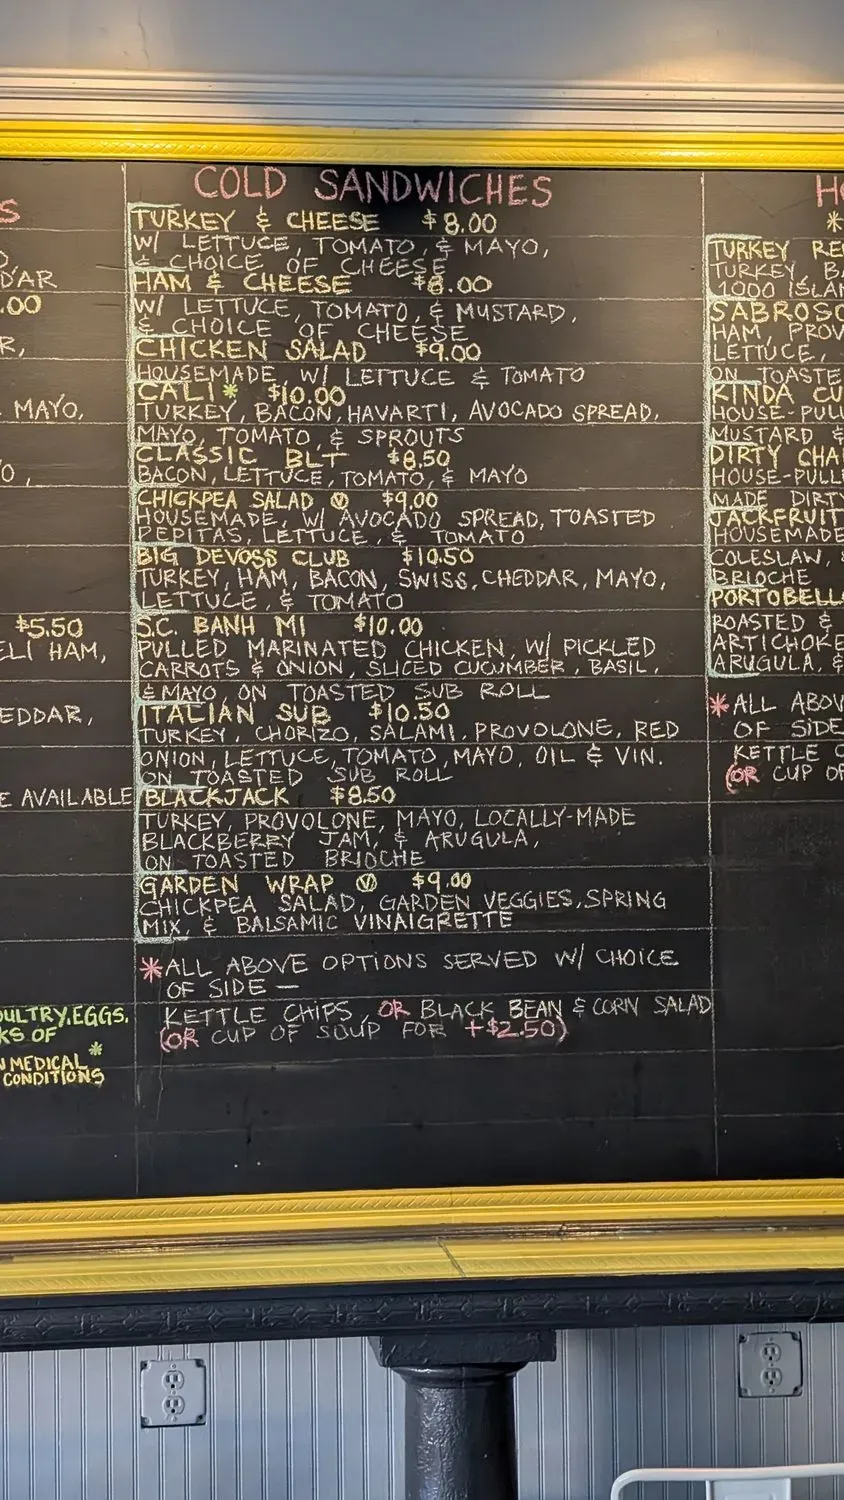 S
D'AR
.00
R,
MAYO,
O,
$5.50
ELI HAM,
EDDAR,
E AVAILABLE
OULTRY, EGGS,
KS OF
N MEDICAL *
CONDITIONS
COLD SANDWICHES
TURKEY & CHEESE $8.00
W/ LETTUCE, TOMATO, & MAYO,
& CHOICE OF CHEESE
HAM & CHEESE $8.00
W/ LETTUCE, TOMATO, & MUSTARD,
& CHOICE OF CHEESE
CHICKEN SALAD $9.00
HOUSEMADE W/ LETTUCE & TOMATO
CALI * $10.00
TURKEY, BACON, HAVARTI, AVOCADO SPREAD,
MAYO, TOMATO, & SPROUTS
CLASSIC BLT $8.50
BACON, LETTUCE, TOMATO, & MAYO
CHICKPEA SALAD Ⓥ $9.00
HOUSEMADE, W/ AVOCADO SPREAD, TOASTED
PEPITAS, LETTUCE, & TOMATO
BIG DEVOSS CLUB $10.50
TURKEY, HAM, BACON, SWISS, CHEDDAR, MAYO,
LETTUCE, & TOMATO
S.C. BANH MI $10.00
PULLED MARINATED CHICKEN, W/ PICKLED
CARROTS & ONION, SLICED CUCUMBER, BASIL,
& MAYO, ON TOASTED SUB ROLL
ITALIAN SUB $10.50
TURKEY, CHORIZO, SALAMI, PROVOLONE, RED
ONION, LETTUCE, TOMATO, MAYO, OIL & VIN.
ON TOASTED SUB ROLL
BLACKJACK $8.50
TURKEY, PROVOLONE, MAYO, LOCALLY-MADE
BLACKBERRY JAM, & ARUGULA,
ON TOASTED BRIOCHE
GARDEN WRAP Ⓥ $9.00
CHICKPEA SALAD, GARDEN VEGGIES, SPRING
MIX, & BALSAMIC VINAIGRETTE
* ALL ABOVE OPTIONS SERVED W/ CHOICE
OF SIDE —
KETTLE CHIPS, OR BLACK BEAN & CORN SALAD
(OR CUP OF SOUP FOR +$2.50)
HO
*
TURKEY RE
TURKEY, BA
1000 ISLAN
SABROSO
HAM, PROV
LETTUCE,
ON TOASTE
KINDA CU
HOUSE-PUL
MUSTARD &
DIRTY CHA
HOUSE-PULL
MADE DIRTY
JACKFRUIT
HOUSEMADE
COLESLAW, &
BRIOCHE
PORTOBELLO
ROASTED &
ARTICHOKE
ARUGULA, &
* ALL ABOV
OF SIDE
KETTLE C
(OR CUP OF